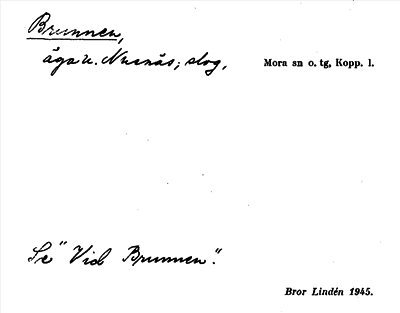 Brunnen,
äga u. Nusnäs; slog,
Mora sn o. tg, Kopp. l.
Se "Vid Brunnen".
Bror Lindén 1945.